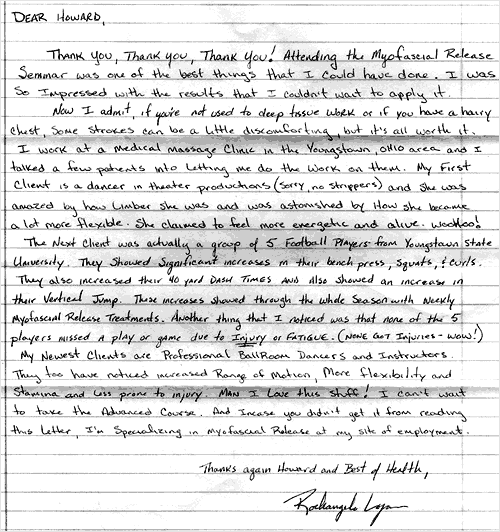 Dear Howard,
Thank you, Thank you, Thank You! Attending the Myofascial Release
Seminar was one of the best things that I could have done. I was
So Impressed with the results that I couldn't wait to apply it.
Now I admit, if you're not used to deep tissue work or if you have a hairy
chest, Some strokes can be a little discomforting, but it's all worth it.
I work at a medical massage Clinic in the Youngstown, Ohio area and I
talked a few patients into letting me do the work on them. My First
Client is a dancer in theater productions (sorry, no strippers) and She was
amazed by how limber She was and was astonished by How she became
a lot more flexible. She claimed to feel more energetic and alive. Woohoo!
The Next Client was actually a group of 5 Football Players from Youngstown State
University. They Showed Significant increases in their bench press, Squats, & Curls.
They also increased their 40 yard Dash Times and also showed an increase in
their Vertical Jump. These increases showed through the whole Season with Weekly
Myofascial Release Treatments. Another thing that I noticed was that none of the 5
players missed a play or game due to Injury or Fatigue. (None Got Injuries - Wow!)
My Newest Clients are Professional BallRoom Dancers and Instructors.
They too have noticed increased Range of Motion, More flexibility and
Stamina and less prone to injury. Man I Love this Stuff! I can't wait
to take the Advanced Course. And Incase you didn't get it from reading
this Letter, I'm Specializing in Myofascial Release at my site of employment.
Thanks again Howard and Best of Health,